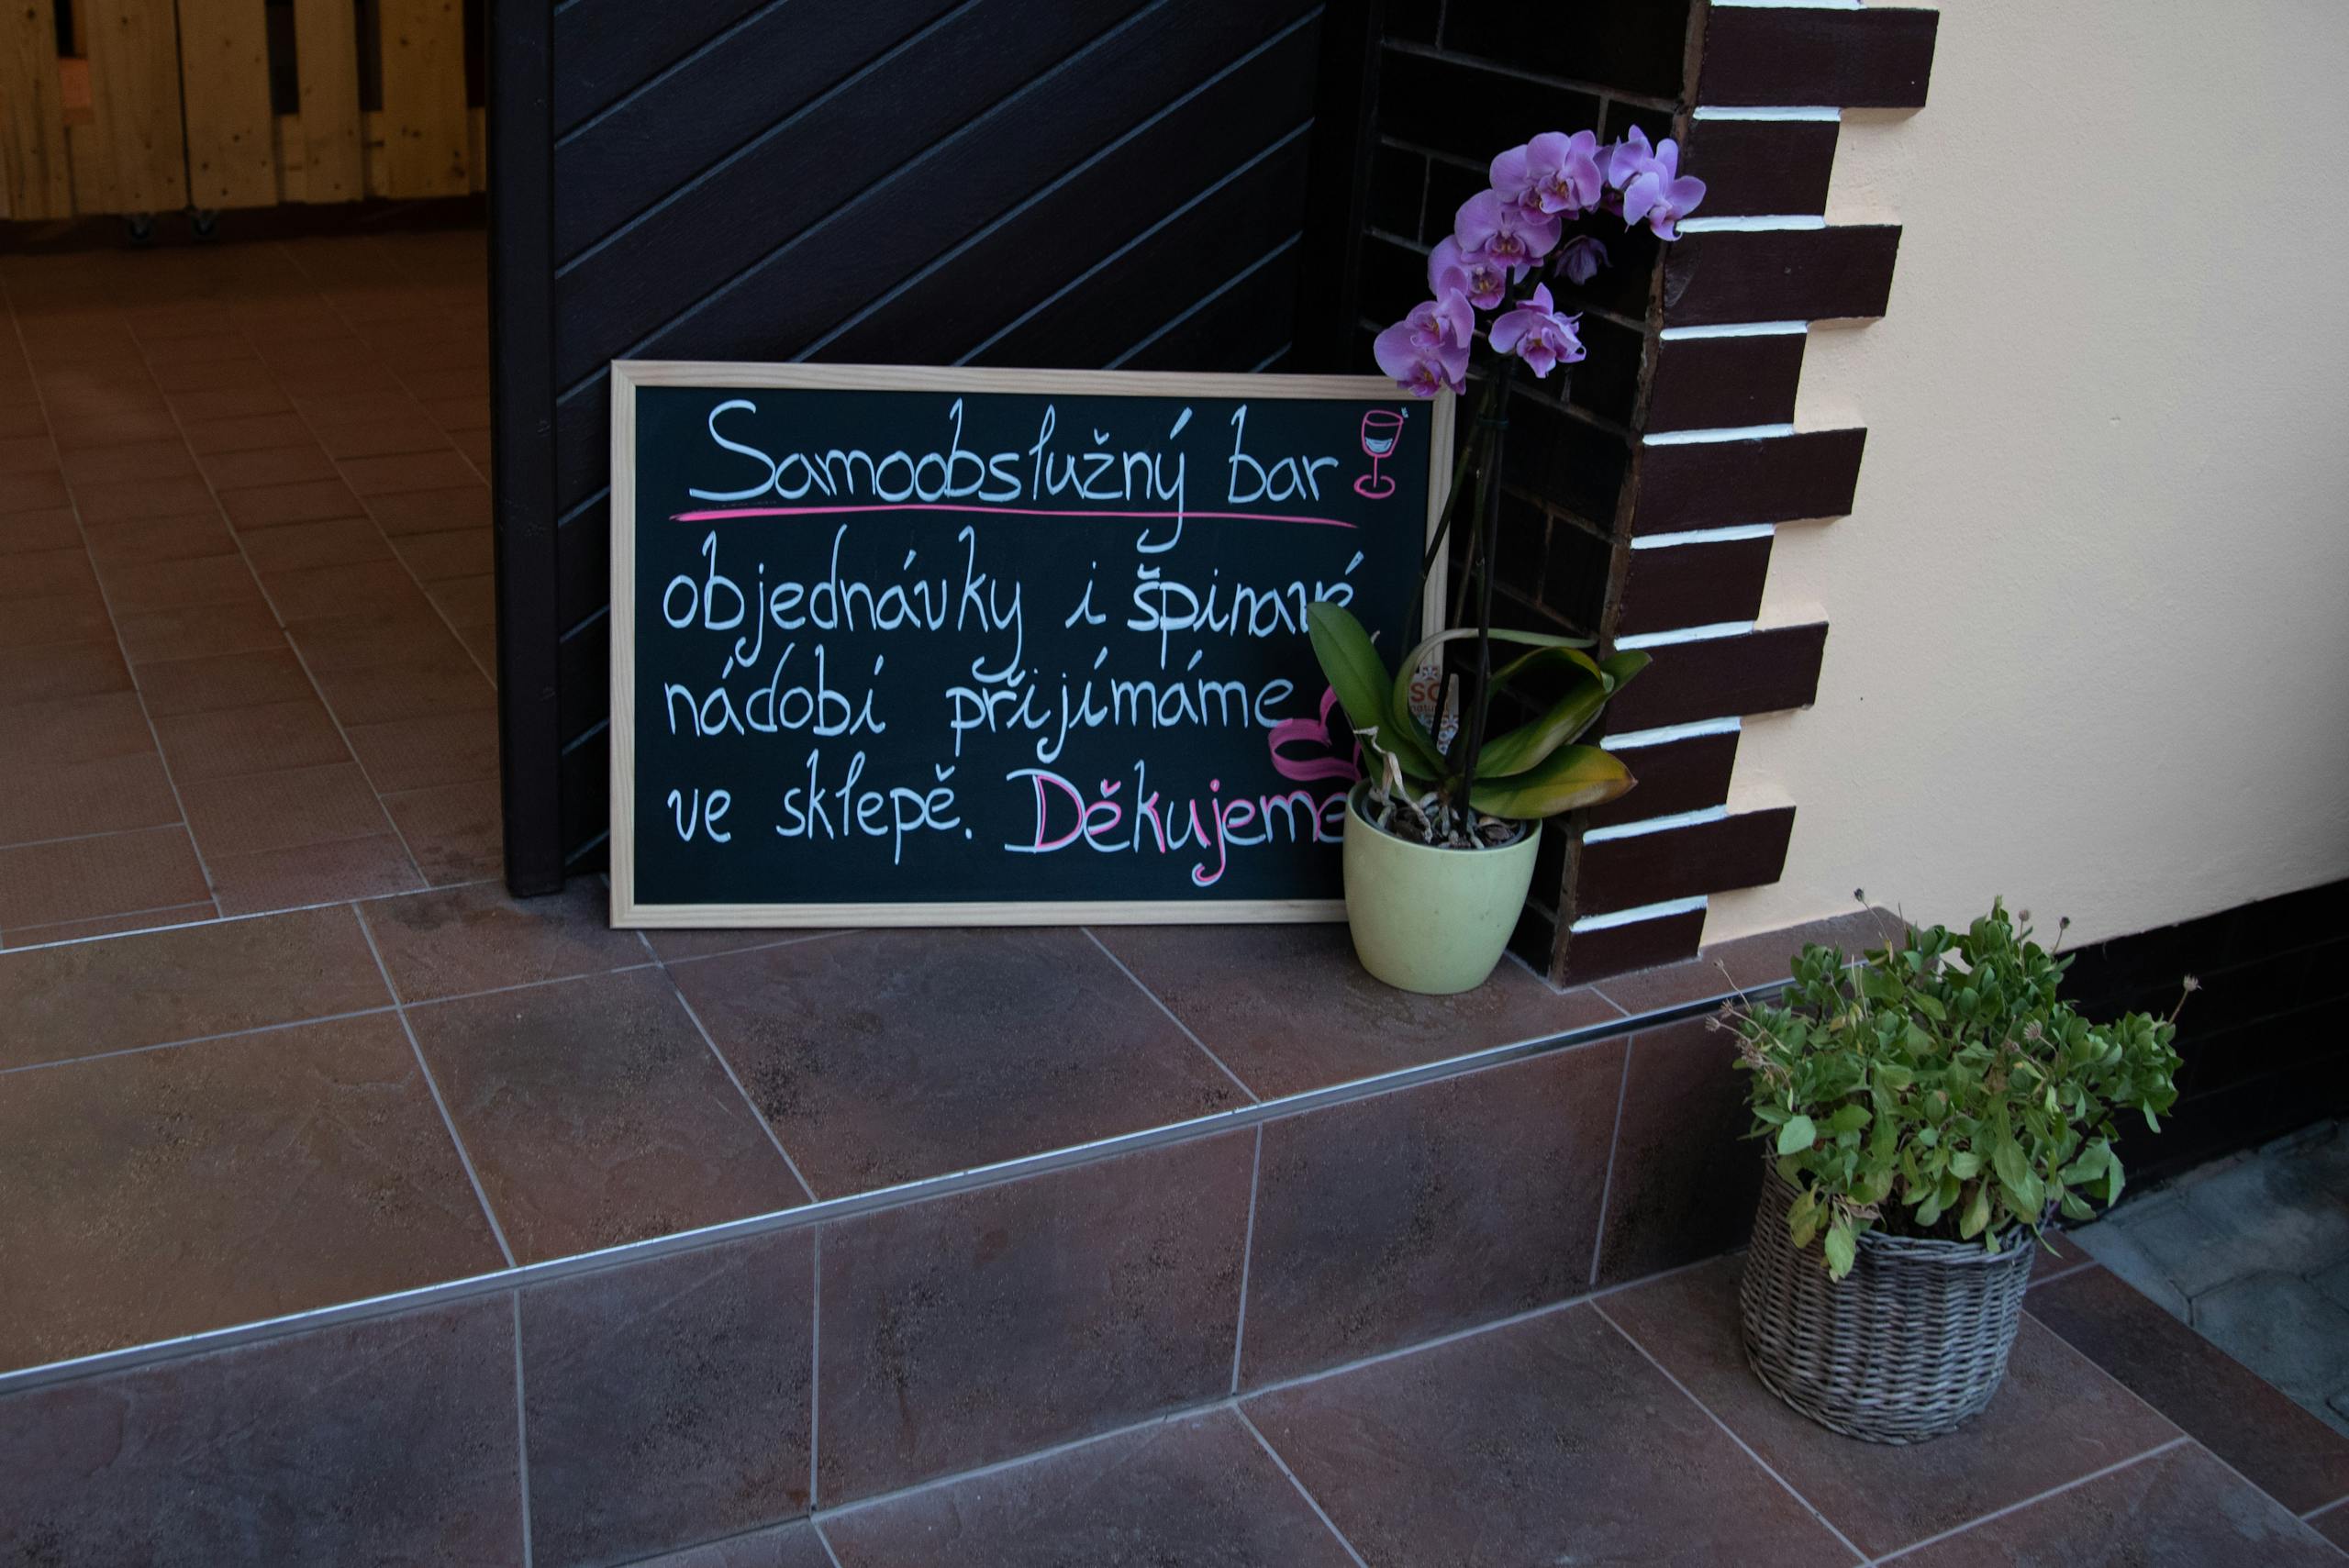 Samoobslužný bar
objednávky i špinavé
nádobí přijímáme
ve sklepě. Děkujeme